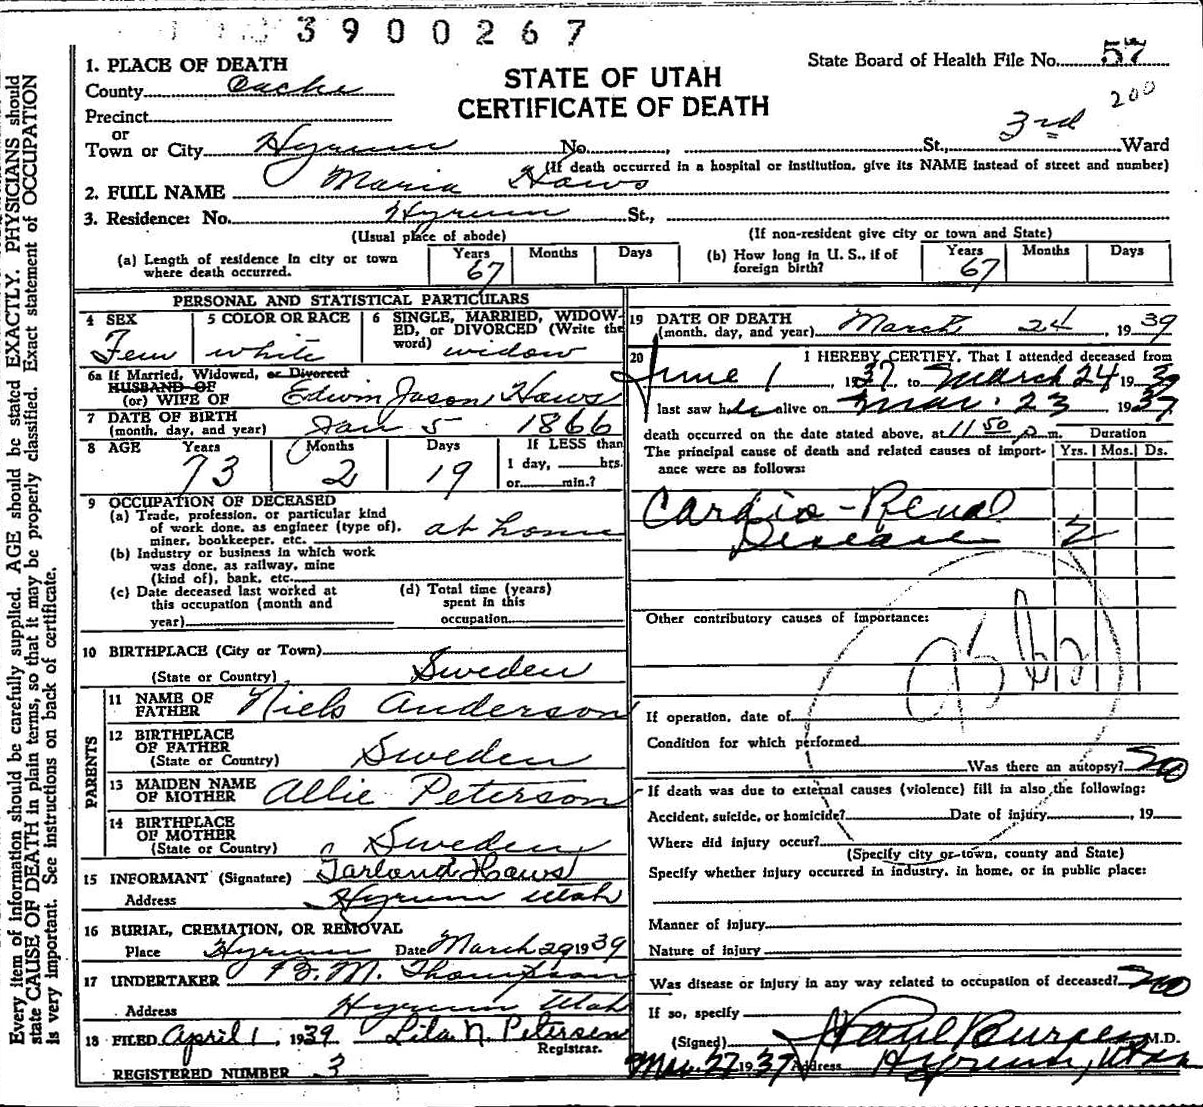 3900267
State Board of Health File No. 57
200
STATE OF UTAH
CERTIFICATE OF DEATH
1. PLACE OF DEATH
County Cache
Precinct
or
Town or City Hyrum No. , St., 3rd Ward
(If death occurred in a hospital or institution, give its NAME instead of street and number)
2. FULL NAME Maria Haws
3. Residence: No. Hyrum St.,
(Usual place of abode) (If non-resident give city or town and State)
(a) Length of residence in city or town where death occurred. Years 67 Months Days
(b) How long in U. S., if of foreign birth? Years 67 Months Days
PERSONAL AND STATISTICAL PARTICULARS
4 SEX Fem
5 COLOR OR RACE white
6 SINGLE, MARRIED, WIDOWED, or DIVORCED (Write the word) widow
6a If Married, Widowed, or Divorced
HUSBAND OF
(or) WIFE OF Edwin Jason Haws
7 DATE OF BIRTH
(month, day, and year) Jan 5 1866
8 AGE Years 73 Months 2 Days 19 If LESS than 1 day, hrs. or min.?
9 OCCUPATION OF DECEASED
(a) Trade, profession, or particular kind of work done, as engineer (type of), miner, bookkeeper, etc. at home
(b) Industry or business in which work was done, as railway, mine (kind of), bank, etc.
(c) Date deceased last worked at this occupation (month and year)
(d) Total time (years) spent in this occupation
10 BIRTHPLACE (City or Town)
(State or Country) Sweden
PARENTS
11 NAME OF FATHER Niels Anderson
12 BIRTHPLACE OF FATHER
(State or Country) Sweden
13 MAIDEN NAME OF MOTHER Allie Peterson
14 BIRTHPLACE OF MOTHER
(State or Country) Sweden
15 INFORMANT (Signature) Tarland Haws
Address Hyrum Utah
16 BURIAL, CREMATION, OR REMOVAL
Place Hyrum Date March 29 1939
17 UNDERTAKER B. M. Thompson
Address Hyrum Utah
18 FILED April 1, 1939 Lila N. Petersen
Registrar.
REGISTERED NUMBER 3
19 DATE OF DEATH
(month, day, and year) March 24, 1939
20 I HEREBY CERTIFY, That I attended deceased from
June 1 1937. to March 24 1939
last saw her alive on Mar. 23 1937
death occurred on the date stated above, at 11 50 p m. Duration
The principal cause of death and related causes of importance were as follows: Yrs. Mos. Ds.
Cardio-Renal
Disease 2
Other contributory causes of importance:
If operation, date of
Condition for which performed
Was there an autopsy? No
If death was due to external causes (violence) fill in also the following:
Accident, suicide, or homicide? Date of injury , 19
Where did injury occur?
(Specify city or town, county and State)
Specify whether injury occurred in industry, in home, or in public place:
Manner of injury
Nature of injury
Was disease or injury in any way related to occupation of deceased? No
If so, specify
(Signed) M.D.
Mar. 27 1937 Address Hyrum, Utah
Every item of information should be carefully supplied. AGE should be stated EXACTLY. PHYSICIANS should
state CAUSE OF DEATH in plain terms, so that it may be properly classified. Exact statement of OCCUPATION
is very important. See instructions on back of certificate.